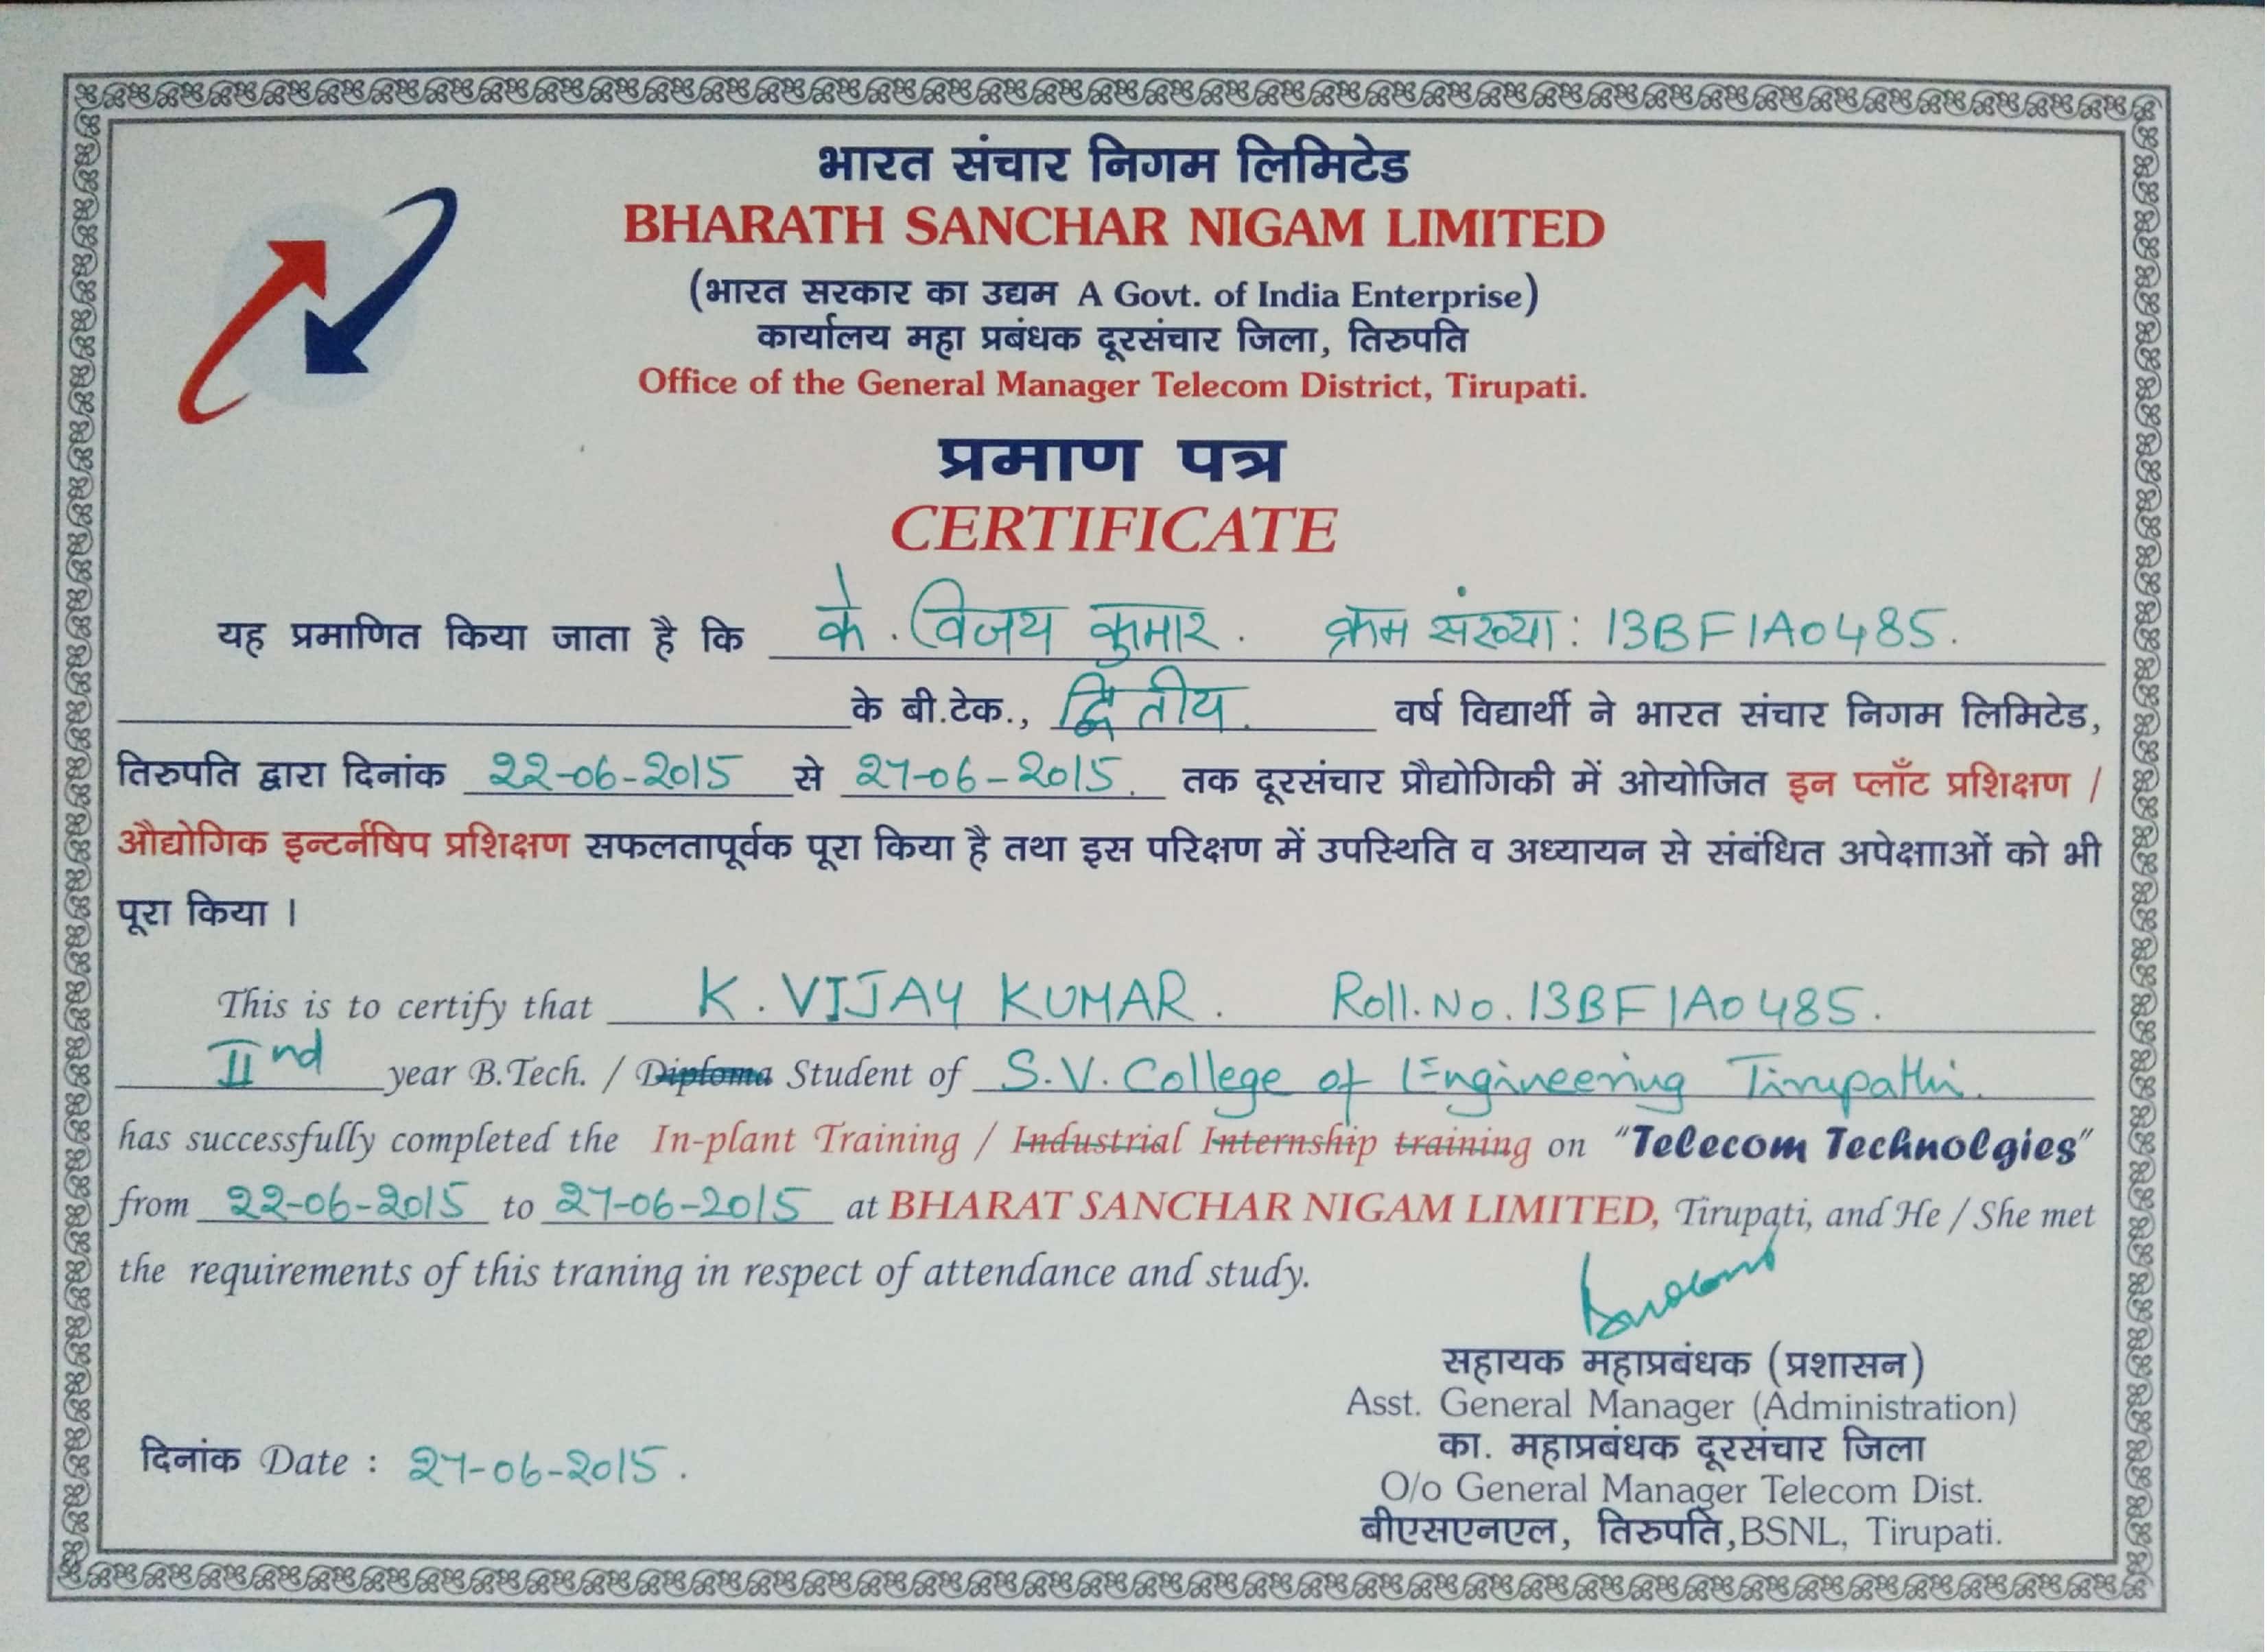 भारत संचार निगम लिमिटेड
BHARATH SANCHAR NIGAM LIMITED
(भारत सरकार का उद्यम A Govt. of India Enterprise)
कार्यालय महा प्रबंधक दूरसंचार जिला, तिरुपति
Office of the General Manager Telecom District, Tirupati.
प्रमाण पत्र
CERTIFICATE
यह प्रमाणित किया जाता है कि के. विजय कुमार. क्रम संख्या: 13BF1A0485.
के बी.टेक., द्वितीय. वर्ष विद्यार्थी ने भारत संचार निगम लिमिटेड,
तिरुपति द्वारा दिनांक 22-06-2015 से 27-06-2015. तक दूरसंचार प्रौद्योगिकी में ओयोजित इन प्लाँट प्रशिक्षण /
औद्योगिक इन्टर्नषिप प्रशिक्षण सफलतापूर्वक पूरा किया है तथा इस परिक्षण में उपस्थिति व अध्यायन से संबंधित अपेक्षााओं को भी
पूरा किया ।
This is to certify that K. VIJAY KUMAR. Roll. No. 13BF1A0485.
IInd year B.Tech. / Diploma Student of S.V. College of Engineering Tirupathi.
has successfully completed the In-plant Training / Industrial Internship training on “Telecom Technolgies”
from 22-06-2015 to 27-06-2015 at BHARAT SANCHAR NIGAM LIMITED, Tirupati, and He / She met
the requirements of this traning in respect of attendance and study.
सहायक महाप्रबंधक (प्रशासन)
Asst. General Manager (Administration)
का. महाप्रबंधक दूरसंचार जिला
O/o General Manager Telecom Dist.
बीएसएनएल, तिरुपति,BSNL, Tirupati.
दिनांक Date : 27-06-2015.